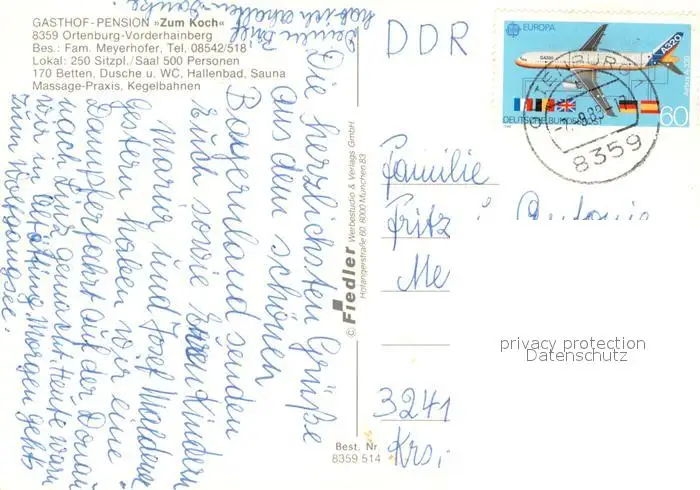 GASTHOF-PENSION »Zum Koch«
8359 Ortenburg-Vorderhainberg
Bes.: Fam. Meyerhofer, Tel. 08542/518
Lokal: 250 Sitzpl./Saal 500 Personen
170 Betten, Dusche u. WC, Hallenbad, Sauna
Massage-Praxis, Kegelbahnen
Deinen Brief
hab ich erhalten. Danke.
Die herzlichsten Grüße
aus dem schönen
Bayernland senden
Euch sowie Euren Kindern
Maria und Josef
Gestern haben wir eine
Dampferfahrt auf der Donau
nach Linz gemacht. Heute warn
wir in Altötting, Morgen gehts
zum Wolfgangsee.
© Fiedler Werbestudio & Verlags GmbH
Hofangerstraße 60, 8000 München 83
Best. Nr.
8359 514
DDR
EUROPA
A320
Airbus A320
DEUTSCHE BUNDESPOST
60
ORTENBURG
8359
Familie
Fritz
Me
3241
Krs.
privacy protection
Datenschutz